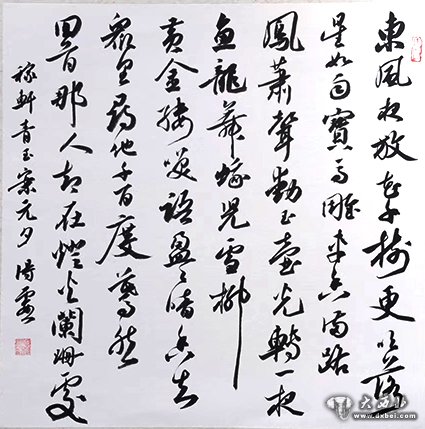 東風夜放花千樹更吹落
星如雨寶馬雕車香滿路
鳳蕭聲動玉壺光轉一夜
魚龍舞蛾兒雪柳
黃金縷笑語盈盈暗香去
眾里尋他千百度驀然
回首那人却在燈火闌珊處
稼軒青玉案元夕
www.dxbei.com